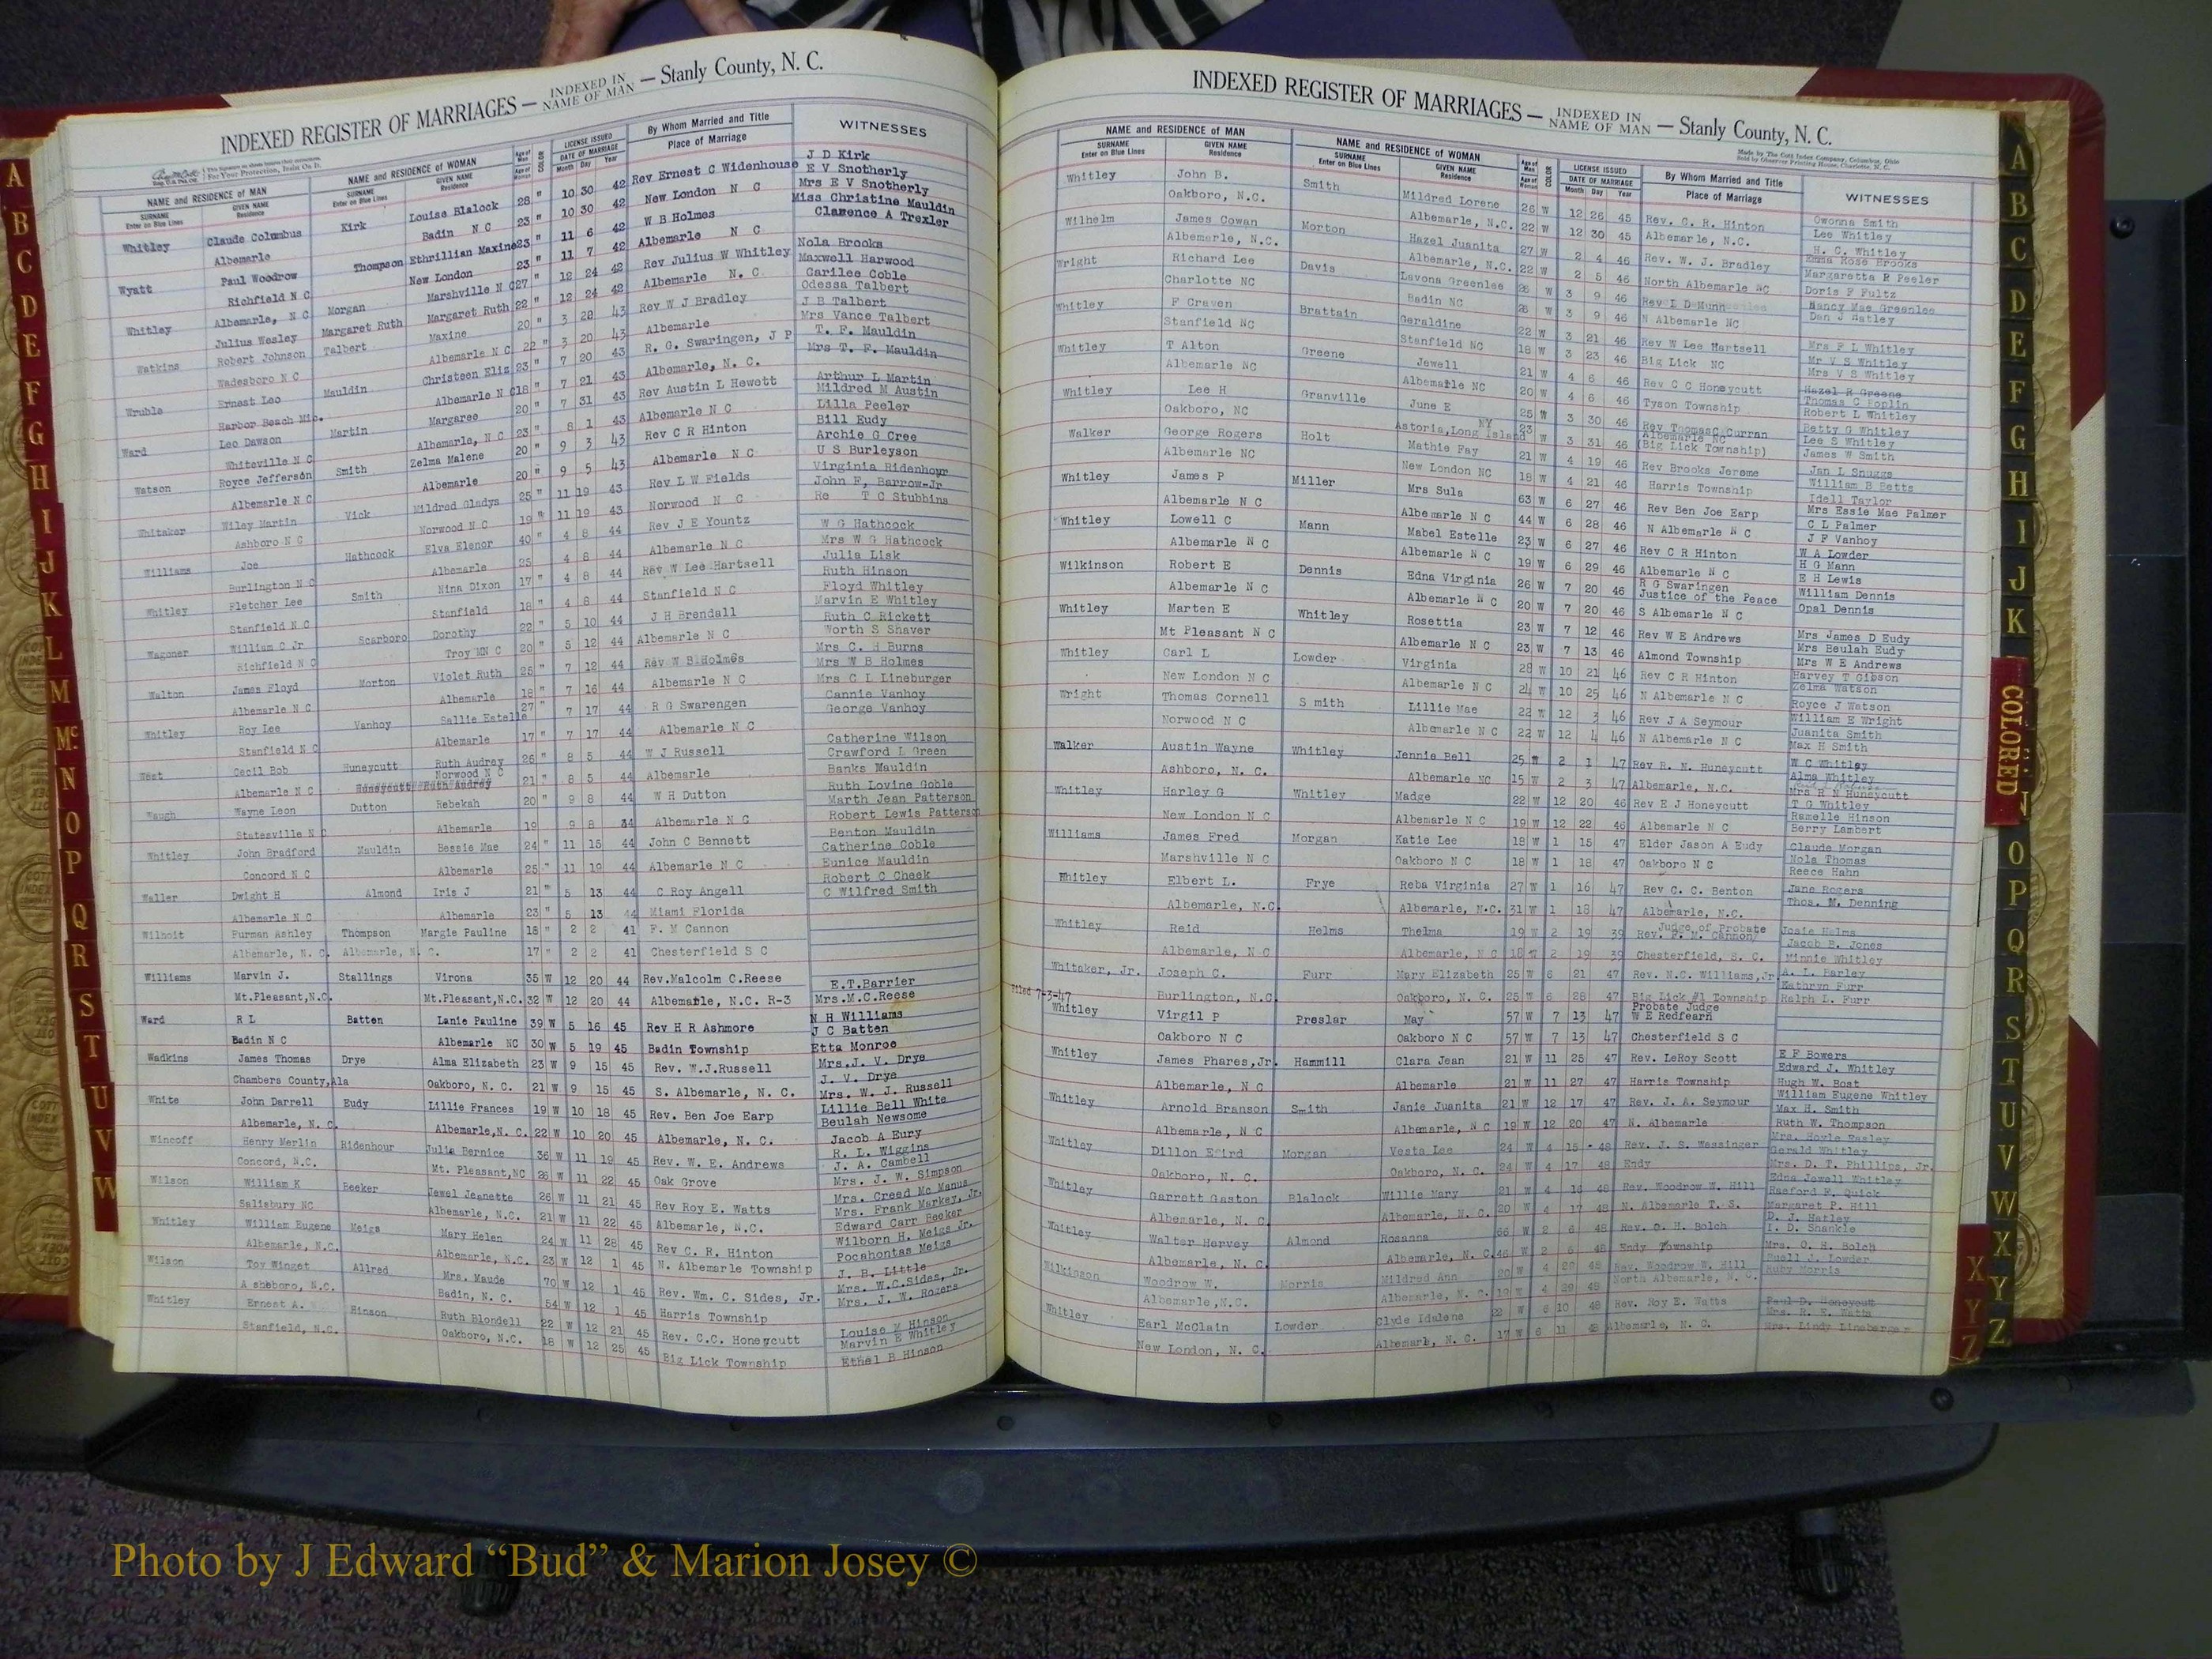 INDEXED REGISTER OF MARRIAGES — INDEXED IN NAME OF MAN — Stanly County, N. C.
NAME and RESIDENCE of MAN NAME and RESIDENCE of WOMAN LICENSE ISSUED By Whom Married and Title WITNESSES
SURNAME GIVEN NAME SURNAME GIVEN NAME COLOR DATE OF MARRIAGE Place of Marriage
Enter on Blue Lines Residence Enter on Blue Lines Residence Month Day Year
Whitley Claude Columbus Kirk Louise Blalock 28 " 10 30 42 Rev Ernest C Widenhouse J D Kirk
Albemarle Badin N C 23 " 10 30 42 New London N C E V Snotherly
Mrs E V Snotherly
Wyatt Paul Woodrow Thompson Ethrillian Maxine 23 " 11 6 42 W B Holmes Miss Christine Mauldin
Richfield N C New London 23 " 11 7 42 Albemarle N C Clamence A Trexler
Whitley Albemarle, N C Morgan Marshville N C 27 " 12 24 42 Rev Julius W Whitley Nola Brooks
Julius Wesley Margaret Ruth Margaret Ruth 22 " 12 24 42 Albemarle N. C. Maxwell Harwood
Carilee Coble
Watkins Robert Johnson Talbert Maxine 20 " 3 20 43 Rev W J Bradley Odessa Talbert
Wadesboro N C Albemarle N C 22 " 3 20 43 Albemarle J B Talbert
Mrs Vance Talbert
Wruble Ernest Leo Mauldin Christeen Eliz 23 " 7 20 43 R. G. Swaringen, J P T. F. Mauldin
Harbor Beach Mic. Albemarle N C 18 " 7 21 43 Albemarle, N. C. Mrs T. F. Mauldin
Ward Leo Dawson Martin Margaree 20 " 7 31 43 Rev Austin L Hewett Arthur L Martin
Whiteville N C Albemarle, N C 23 " 8 1 43 Albemarle N C Mildred M Austin
Lilla Peeler
Watson Royce Jefferson Smith Zelma Malene 20 " 9 3 43 Rev C R Hinton Bill Eudy
Albemarle N C Albemarle 20 " 9 5 43 Albemarle N C Archie G Cree
U S Burleyson
Whitaker Wiley Martin Vick Mildred Gladys 25 " 11 19 43 Rev L W Fields Virginia Ridenhour
Ashboro N C Norwood N C 19 " 11 19 43 Norwood N C John F, Barrow-Jr
Re T C Stubbins
Williams Joe Hathcock Elva Elenor 40 " 4 8 44 Rev J E Yountz W G Hathcock
Burlington N C Albemarle 25 4 8 44 Albemarle N C Mrs W G Hathcock
Julia Lisk
Whitley Fletcher Lee Smith Nina Dixon 17 " 4 8 44 Rev W Lee Hartsell Ruth Hinson
Stanfield N C Stanfield 18 " 4 8 44 Stanfield N C Floyd Whitley
Marvin E Whitley
Wagoner William C Jr Scarboro Dorothy 22 " 5 10 44 J H Brendall Ruth C Rickett
Richfield N C Troy MN C 20 " 5 12 44 Albemarle N C Worth S Shaver
Mrs C. H Burns
Walton James Floyd Morton Violet Ruth 25 " 7 12 44 Rev W B Holmes Mrs W B Holmes
Albemarle N C Albemarle 18 " 7 16 44 Albemarle N C Mrs C L Lineburger
Whitley Roy Lee Vanhoy Sallie Estelle 27 " 7 17 44 R G Swarengen Cannie Vanhoy
Stanfield N C Albemarle 17 " 7 17 44 Albemarle N C George Vanhoy
Catherine Wilson
West Cecil Bob Huneycutt Ruth Audrey 26 " 8 5 44 W J Russell Crawford L Green
Albemarle N C Norwood N C 21 " 8 5 44 Albemarle Banks Mauldin
Waugh Wayne Leon Dutton Rebekah 20 " 9 8 44 W H Dutton Ruth Lovine Goble
Statesville N C Albemarle 19 9 8 44 Albemarle N C Marth Jean Patterson
Robert Lewis Patterson
Whitley John Bradford Mauldin Bessie Mae 24 " 11 15 44 John C Bennett Benton Mauldin
Concord N C Albemarle 25 " 11 19 44 Albemarle N C Catherine Coble
Eunice Mauldin
Waller Dwight H Almond Iris J 21 " 5 13 44 C Roy Angell Robert C Cheek
Albemarle N C Albemarle 23 " 5 13 44 Miami Florida C Wilfred Smith
Wilhoit Furman Ashley Thompson Margie Pauline 18 " 2 2 41 F. M Cannon
Albemarle, N. C. Albemarle, N. C. 17 " 2 2 41 Chesterfield S C
Williams Marvin J. Stallings Virona 35 W 12 20 44 Rev.Malcolm C.Reese E.T.Barrier
Mt.Pleasant,N.C. Mt.Pleasant,N.C. 32 W 12 20 44 Albemarle, N.C. R-3 Mrs.M.C.Reese
Ward R L Batten Lanie Pauline 39 W 5 16 45 Rev H R Ashmore N H Williams
Badin N C Albemarle NC 30 W 5 19 45 Badin Township J C Batten
Etta Monroe
Wadkins James Thomas Drye Alma Elizabeth 23 W 9 15 45 Rev. W.J.Russell Mrs.J. V. Drye
Chambers County,Ala Oakboro, N. C. 21 W 9 15 45 S. Albemarle, N. C. J. V. Drye
Mrs. W. J. Russell
White John Darrell Eudy Lillie Frances 19 W 10 18 45 Rev. Ben Joe Earp Lillie Bell White
Albemarle, N. C. Albemarle,N.C. 22 W 10 20 45 Albemarle, N. C. Beulah Newsome
Jacob A Eury
Wincoff Henry Merlin Ridenhour Julia Bernice 36 W 11 19 45 Rev. W. E. Andrews R. L. Wiggins
Concord, N.C. Mt. Pleasant,NC 26 W 11 22 45 Oak Grove J. A. Cambell
Mrs. J. W. Simpson
Wilson William K Beeker Jewel Jeanette 26 W 11 21 45 Rev Roy E. Watts Mrs. Creed Mc Manus
Salisbury NC Albemarle, N.C. 21 W 11 22 45 Albemarle, N.C. Mrs. Frank Markey, Jr.
Edward Carr Beeker
Whitley William Eugene Meigs Mary Helen 24 W 11 28 45 Rev C. R. Hinton Wilborn H. Meigs Jr.
Albemarle, N.C. Albemarle, N.C. 23 W 12 1 45 N. Albemarle Township Pocahontas Meigs
J. B. Little
Wilson Toy Winget Allred Mrs. Maude 70 W 12 1 45 Rev. Wm. C. Sides, Jr. Mrs. W.C.Sides, Jr.
Asheboro, N.C. Badin, N. C. 54 W 12 1 45 Harris Township Mrs. J. W. Rogers
Whitley Ernest A. Hinson Ruth Blondell 22 W 12 21 45 Rev. C.C. Honeycutt Louise M Hinson
Stanfield, N.C. Oakboro, N.C. 18 W 12 25 45 Big Lick Township Marvin E Whitley
Ethel B Hinson
INDEXED REGISTER OF MARRIAGES — INDEXED IN NAME OF MAN — Stanly County, N. C.
NAME and RESIDENCE OF MAN NAME and RESIDENCE OF WOMAN LICENSE ISSUED By Whom Married and Title WITNESSES
SURNAME GIVEN NAME SURNAME GIVEN NAME COLOR DATE OF MARRIAGE Place of Marriage
Enter on Blue Lines Residence Enter on Blue Lines Residence Month Day Year
Whitley John B. Smith Mildred Lorene 26 W 12 26 45 Rev. C. R. Hinton Owonna Smith
Oakboro, N.C. Albemarle, N.C. 22 W 12 30 45 Albemarle, N.C. Lee Whitley
H. C. Whitley
Wilhelm James Cowan Morton Hazel Juanita 27 W 2 4 46 Rev. W. J. Bradley Emma Rose Brooks
Albemarle, N.C. Albemarle, N.C. 22 W 2 5 46 North Albemarle NC Margaretta R Peeler
Doris F Fultz
Wright Richard Lee Davis Lavona Greenlee 26 W 3 9 46 Rev L D Munn Nancy Mae Greenlee
Charlotte NC Badin NC W 3 9 46 N Albemarle NC Dan J Hatley
Whitley F Craven Brattain Geraldine 22 W 3 21 46 Rev W Lee Hartsell Mrs P L Whitley
Stanfield NC Stanfield NC 18 W 3 23 46 Big Lick NC Mr V S Whitley
Mrs V S Whitley
Whitley T Alton Greene Jewell 21 W 4 6 46 Rev C C Honeycutt Hazel R Greene
Albemarle NC Albemarle NC 20 W 4 6 46 Tyson Township Thomas C Poplin
Robert L Whitley
Whitley Lee H Granville June E 25 W 3 30 46 Rev ThomasC Curran Betty G Whitley
Oakboro, NC Astoria,Long Island NY 23 W 3 31 46 Albemarle NC (Big Lick Township) Lee S Whitley
James W Smith
Walker George Rogers Holt Mathie Fay 21 W 4 19 46 Rev Brooks Jerome Jan L Snuggs
Albemarle NC New London NC 18 W 4 21 46 Harris Township William B Betts
Idell Taylor
Whitley James P Miller Mrs Sula 63 W 6 27 46 Rev Ben Joe Earp Mrs Essie Mae Palmer
Albemarle N C Albemarle N C 44 W 6 28 46 N Albemarle N C C L Palmer
J F Vanhoy
Whitley Lowell C Mann Mabel Estelle 23 W 6 27 46 Rev C R Hinton W A Lowder
Albemarle N C Albemarle N C 19 W 6 29 46 Albemarle N C H G Mann
E H Lewis
Wilkinson Robert E Dennis Edna Virginia 26 W 7 20 46 R G Swaringen Justice of the Peace William Dennis
Albemarle N C Albemarle N C 20 W 7 20 46 S Albemarle N C Opal Dennis
Whitley Marten E Whitley Rosettia 23 W 7 12 46 Rev W E Andrews Mrs James D Eudy
Mt Pleasant N C Albemarle N C 23 W 7 13 46 Almond Township Mrs Beulah Eudy
Mrs W E Andrews
Whitley Carl L Lowder Virginia 28 W 10 21 46 Rev C R Hinton Harvey T Gibson
New London N C Albemarle N C 24 W 10 25 46 N Albemarle N C Zelma Watson
Royce J Watson
Wright Thomas Cornell Smith Lillie Mae 22 W 12 3 46 Rev J A Seymour William E Wright
Norwood N C Albemarle N C 22 W 12 4 46 N Albemarle N C Juanita Smith
Max H Smith
Walker Austin Wayne Whitley Jennie Bell 25 W 2 1 47 Rev R. N. Huneycutt W C Whitley
Ashboro, N. C. Albemarle NC 15 W 2 3 47 Albemarle, N.C. Alma Whitley
Mrs R N Huneycutt
Whitley Harley G Whitley Madge 22 W 12 20 46 Rev E J Honeycutt T G Whitley
New London N C Albemarle N C 19 W 12 22 46 Albemarle N C Ramelle Hinson
Berry Lambert
Williams James Fred Morgan Katie Lee 18 W 1 15 47 Elder Jason A Eudy Claude Morgan
Marshville N C Oakboro N C 18 W 1 18 47 Oakboro N C Nola Thomas
Reece Hahn
Whitley Elbert L. Frye Reba Virginia 27 W 1 16 47 Rev C. C. Benton Jane Rogers
Albemarle, N.C. Albemarle, N.C. 31 W 1 18 47 Albemarle, N.C. Thos. M. Denning
Whitley Reid Helms Thelma 19 W 2 19 39 Judge of Probate Rev. P. M. Cannon Josie Helms
Albemarle, N.C Albemarle, N C 18 W 2 19 39 Chesterfield, S. C. Jacob B. Jones
Minnie Whitley
Whitaker, Jr. Joseph C. Furr Mary Elizabeth 25 W 6 21 47 Rev. N.C. Williams,Jr A. L. Harley
Filed 7-3-47 Burlington, N.C. Oakboro, N. C. 25 W 6 28 47 Big Lick #1 Township Kathryn Furr
Ralph L. Furr
Whitley Virgil P Preslar May 57 W 7 13 47 Probate Judge W E Redfearn
Oakboro N C Oakboro N C 57 W 7 13 47 Chesterfield S C
Whitley James Phares,Jr. Hammill Clara Jean 21 W 11 25 47 Rev. LeRoy Scott E F Bowers
Albemarle, N C Albemarle 21 W 11 27 47 Harris Township Edward J. Whitley
Hugh W. Bost
Whitley Arnold Branson Smith Janie Juanita 21 W 12 17 47 Rev. J. A. Seymour William Eugene Whitley
Albemarle, N C Albemarle, N C 19 W 12 20 47 N. Albemarle Max H. Smith
Ruth W. Thompson
Whitley Dillon Morgan Vesta Lee 24 W 4 15 48 Rev. J. S. Wessinger Mrs. Hoyle Easley
Oakboro, N. C. Oakboro, N. C. 24 W 4 17 48 Endy Gerald Whitley
Mrs. D. T. Phillips, Jr.
Whitley Garrett Gaston Blalock Willie Mary 21 W 4 16 48 Rev. Woodrow W. Hill Edna Jewell Whitley
Albemarle, N. C Albemarle, N. C. 20 W 4 17 48 N. Albemarle T. S. Raeford F. Quick
Margaret P. Hill
Whitley Walter Hervey Almond Rosanna 66 W 2 6 48 Rev. O. H. Bolch D. J. Hatley
Albemarle, N. C. Albemarle, N. C. 46 W 2 6 48 Endy Township I. D. Shankle
Mrs. O. H. Bolch
Wilkinson Woodrow W. Morris Mildred Ann 20 W 4 48 Rev. Woodrow W. Hill Ruell J. Lowder
Albemarle,N.C. Albemarle, N. C. 19 W 4 29 48 North Albemarle, N. C. Ruby Morris
Whitley Earl McClain Lowder Clyde Idulene 22 W 6 10 48 Rev. Roy E. Watts Paul D. Honeycutt
New London, N. C. Albemarl, N. C. 17 W 6 11 48 Albemarle, N. C. Mrs. R. E. Watts
Mrs. Lindy Lineberger
A
B
C
D
E
F
G
H
I
J
K
L
M
Mc
N
O
P
Q
R
S
T
U
V
W
A
B
C
D
E
F
G
H
I
J
K
COLORED
N
O
P
Q
R
S
T
U
V
W
X
Y
Z
X
Y
Z
Photo by J Edward “Bud” & Marion Josey ©